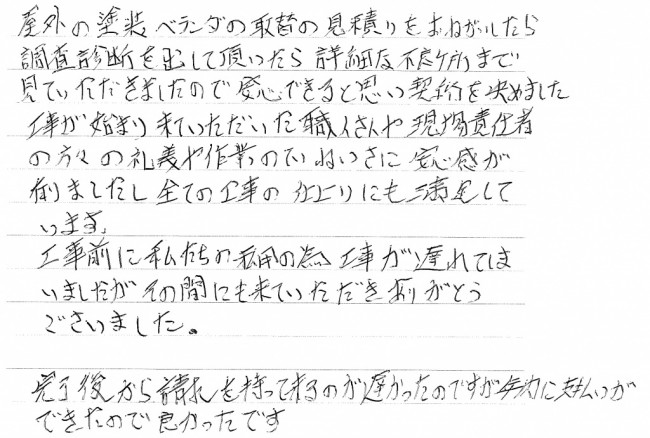 屋外の塗装ベランダの取替の見積りをおねがいしたら
調査診断を出して頂いたら詳細な不良ケ所まで
見ていただきましたので安心できると思い契約を決めました
工事が始まり来ていただいた職人さんや現場責任者
の方々の礼義や作業のていねいさに安心感が
有りましたし全ての工事の仕上りにも満足して
います。
工事前に私たちの私用の為工事が遅れてしま
いましたがその間にも来ていただき有りがとう
ございました。
完了後から請求を持って来るのが遅かったのですが年内に支払いが
できたので良かったです